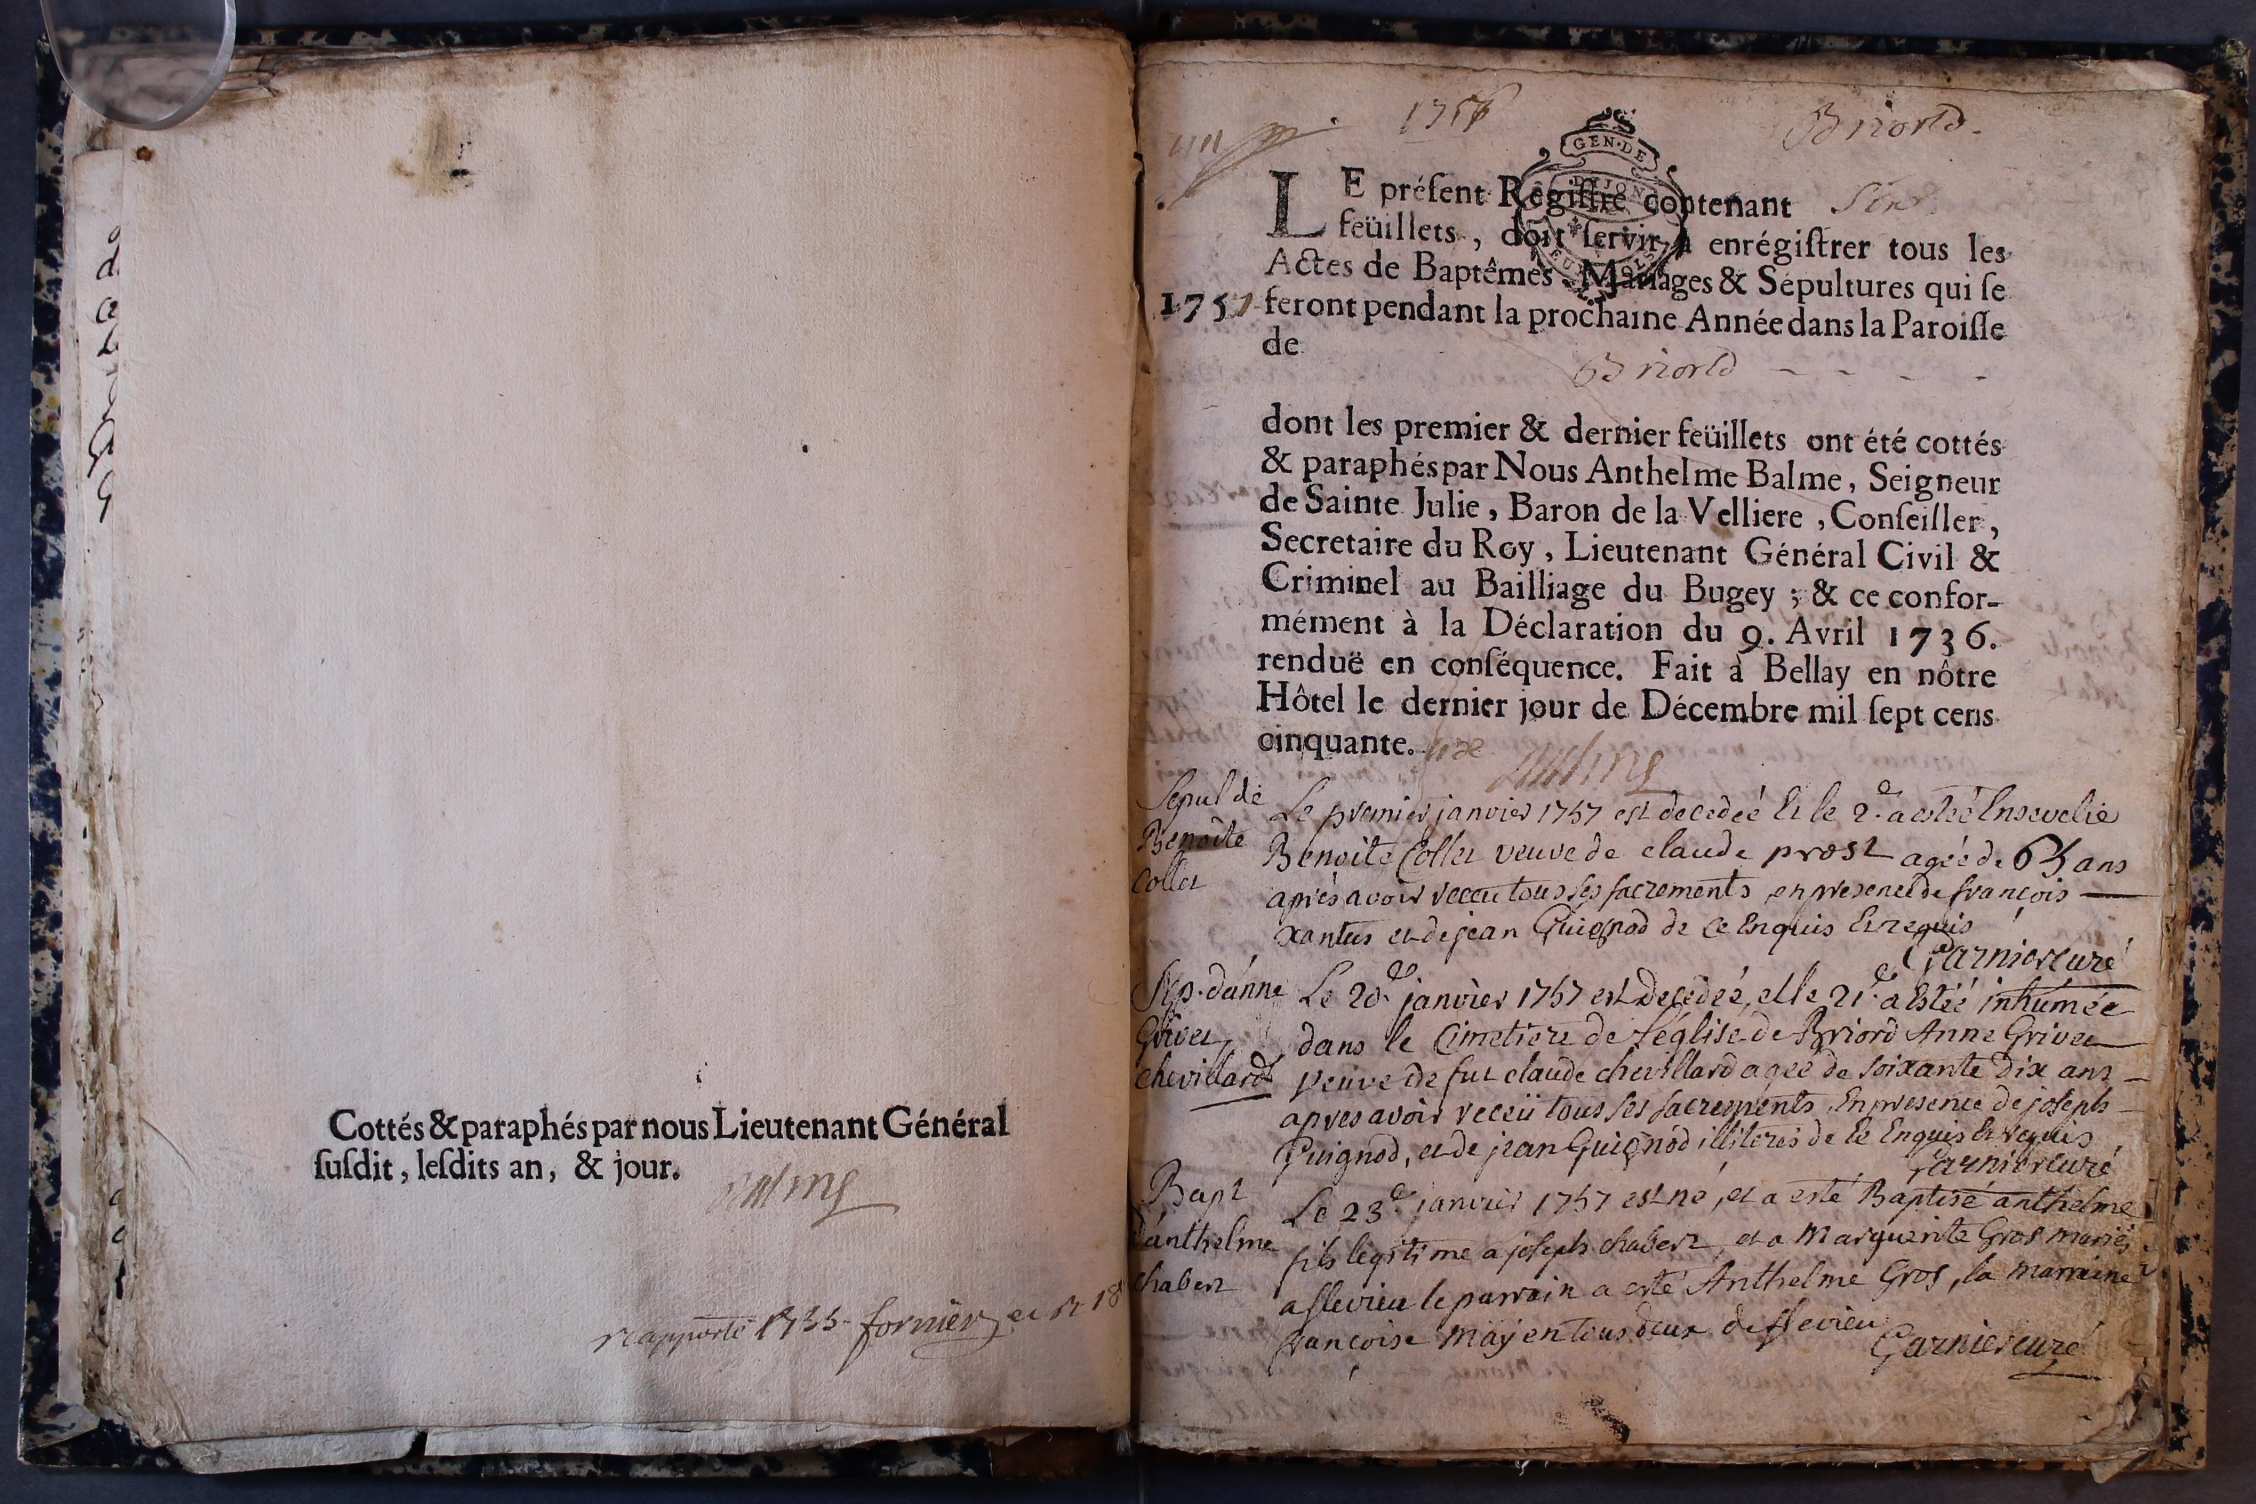 Cottés & paraphés par nous Lieutenant Général
ſuſdit, leſdits an, & jour.
1756
Briord
GEN·DE
DIJON
LE préſent Régiſtre contenant
feüillets, doit ſervir à enrégiſtrer tous les
Actes de Baptêmes Mariages & Sépultures qui ſe
1757 feront pendant la prochaine Année dans la Paroiſſe
de
Briord
dont les premier & dernier feüillets ont été cottés
& paraphés par Nous Anthelme Balme, Seigneur
de Sainte Julie, Baron de la Velliere, Conſeiller,
Secretaire du Roy, Lieutenant Général Civil &
Criminel au Bailliage du Bugey; & ce confor-
mément à la Déclaration du 9. Avril 1736.
renduë en conſéquence. Fait à Bellay en nôtre
Hôtel le dernier jour de Décembre mil ſept cens
cinquante. six
Sepul de
Benoite
Collet
Le premier janvier 1757 est decedeé Et le 2e a estée Ensevelie
Benoite Collet veuve de claude prost ageé de 65 ans
aprés avoir receu tous ses sacrements en presence de françois
xantus et de jean Guignod de ce Enquis Et requis
Garnier curé
Sep. d'anne
Grivet
chevillard
Le 20e janvier 1757 est decedeé, et le 21e a Estée inhumée
dans le Cimetiere de l'église de Briord Anne Grivet
veuve de fut claude chevillard ageé de soixante dix ans
apres avoir receü tous ses sacrements, En presence de joseph
Guignod, et de jean Guignod illiterés de ce Enquis Et requis
Garnier curé
Bapt
d'anthelme
chabert
Le 23e janvier 1757 est né, et a esté Baptisé anthelme
fils legitime a joseph chabert, et a Marguerite Gros mariés
a flevieu le parrain a esté Anthelme Gros, la marraine
francoise may en tous deux de flevieu
Garnier curé